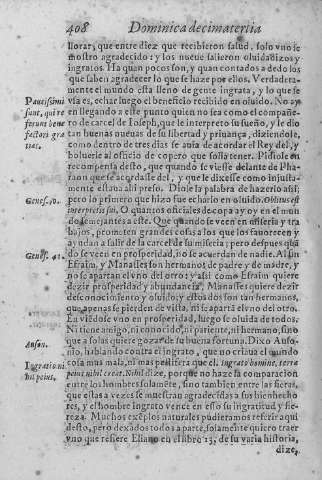 408 Dominica decimatertia
llorar; que entre diez que recibieron salud, solo vno se
mostro agradecido: y los nueue salieron oluidadizos y
ingratos. Ha quan pocos son, y quan contados a dedo los
que saben agradecer lo que se haze por ellos. Verdadera-
mente el mundo esta lleno de gente ingrata, y lo que se
vía es, echar luego el beneficio recibido en oluido. No ay
en llegando a este punto quien no sea como el compañe-
ro de carcel de Ioseph, que le interpreto su sueño, y le dio
tan buenas nueuas de su libertad y priuança, diziendole,
como dentro de tres dias se auia de acordar el Rey del, y
boluerle al oficio de copero que solia tener. Pidiole en
recompensa desto, que quando se viesse delante de Pha-
raon que se acordasse del, y que le dixesse como injusta-
mente estaua alli preso. Diole la palabra de hazerlo assi;
pero lo primero que hizo fue echarlo en oluido. Oblitus est
interpretis sui. O quantos oficiales de copa ay oy en el mun
do semejantes a este. Que quando se veen en miseria y tra
bajos, prometen grandes cosas a los que los fauorecen y
ayudan a salir de la carcel de su miseria; pero despues quãdo
se veen en prosperidad, no se acuerdan de nadie. Assi son
Efraim, y Manasses son hermanos de padre y de madre, y
no se apartan el vno del otro: y assi como Efraim quiere
dezir prosperidad y abundancia, Manasses quiere dezir
desconocimiento y oluido: y estos dos son tan hermanos,
que apenas se pierden de vista, ni se aparta el vno del otro.
En viẽdose vno en prosperidad, luego se oluida de todos:
Ni tiene amigo, ni conocido, ni pariente, ni hermano, sino
que a solas quiere gozar de su buena fortuna. Dixo Auso-
nio, hablando contra el ingrato, que no criaua el mundo
cosa mas mala, ni mas pestifera que el. ingrato homine, terra
peius nihil creat. Nihil dize, porque no haze la comparacion
entre los hombres solamẽte, sino tambien entre las fieras,
que estas a vezes se muestran agradecidas a sus bienhecho
res, y el hombre ingrato vence en esso su ingratitud y fie-
reza. Muchos exẽplos naturales pudieramos referir aqui
desto, pero dexados todos a parte, solamente quiero traer
vno que refiere Eliano en el libro 13, de su varia historia,
dize,
Paucissimi
sunt, qui re
ferunt bene
factori gra
tias.
Genes. 40.
Genes. 41.
Auson.
Ingrato ni
hil peius.